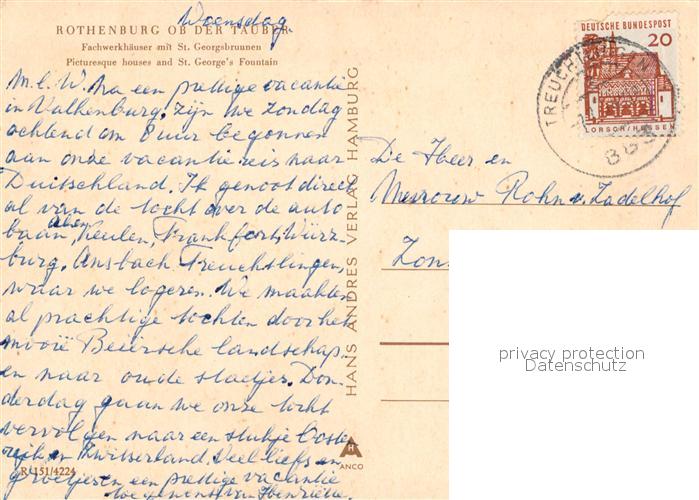 Woensdag.
ROTHENBURG OB DER TAUBER
Fachwerkhäuser mit St. Georgsbrunnen
Picturesque houses and St. George's Fountain
M. l. W. Na een prettige vacantie
in Valkenburg, zijn we Zondag
ochtend om 8 uur begonnen
aan onze vacantiereis naar
Duitschland. Ik genoot direct
al van de tocht over de auto
baan, Keulen, Frankfort, Würz-
burg, Ansbach Treuchtlingen,
waar we logeren. We maakten
al prachtige tochten door het
mooie Beiersche landschap,
en naar oude stadjes. Don-
derdag gaan we onze tocht
vervolgen naar een stukje Ooste
rijk en Zwitserland. Veel liefs en
groetjes en een prettige vacantie
toe gewenst van Henriëtte.
R 151/4224
HANS ANDRES VERLAG HAMBURG
ANCO
DEUTSCHE BUNDESPOST
20
LORSCH/HESSEN
TREUCHTLINGEN
883
De Heer en
Mevrouw Rohn v. Zadelhof
privacy protection
Datenschutz